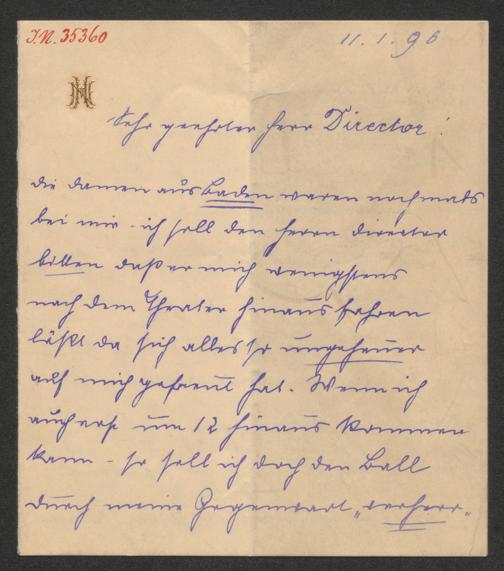 I.N. 35360
11.1.96
H
Sehr geehrter Herr Director!
die Damen aus Baden waren nochmals
bei mir - ich soll den Herrn Director
bitten daß er mich wenigstens
nach dem Theater hinaus fahren
läßt da sich alles so ungeheuer
auf mich gefreut hat. Wenn ich
auch erst um 12 hinaus kommen
kann - so soll ich doch den Ball
durch meine Gegenwart „verherr-